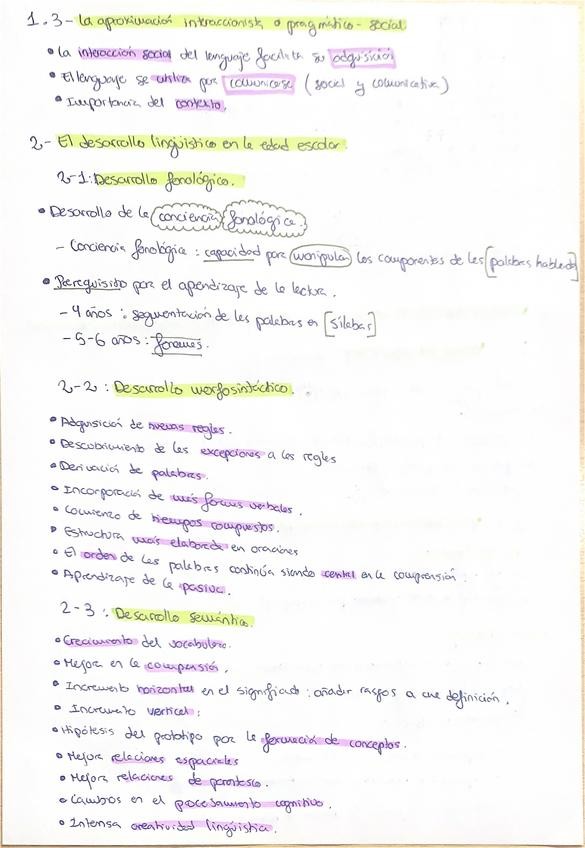 1.3- La aproximación interaccionista o pragmático-social
• La interacción social del lenguaje facilita su adquisición
• El lenguaje se utiliza para comunicarse (social y comunicativa)
• Importancia del contexto.
2- El desarrollo lingüístico en la edad escolar.
2-1: Desarrollo fonológico.
• Desarrollo de la conciencia fonológica.
- Conciencia fonológica: capacidad para manipular los componentes de las [palabras habladas]
• Prerequisito para el aprendizaje de la lectura.
- 4 años: segmentación de las palabras en [sílabas]
- 5-6 años: fonemas.
2-2: Desarrollo morfosintáctico.
• Adquisición de nuevas reglas.
• Descubrimiento de las excepciones a las reglas
• Derivación de palabras.
• Incorporación de más formas verbales.
• Comienzo de tiempos compuestos.
• Estructura más elaborada en oraciones
• El orden de las palabras continúa siendo central en la comprensión.
• Aprendizaje de la pasiva.
2-3: Desarrollo semántico.
• Crecimiento del vocabulario.
• Mejora en la comprensión.
• Incremento horizontal en el significado: añadir rasgos a una definición.
• Incremento vertical:
• Hipótesis del prototipo para la formación de conceptos.
• Mejora relaciones espaciales
• Mejora relaciones de parentesco.
• Cambios en el procesamiento cognitivo.
• Intensa creatividad lingüística.